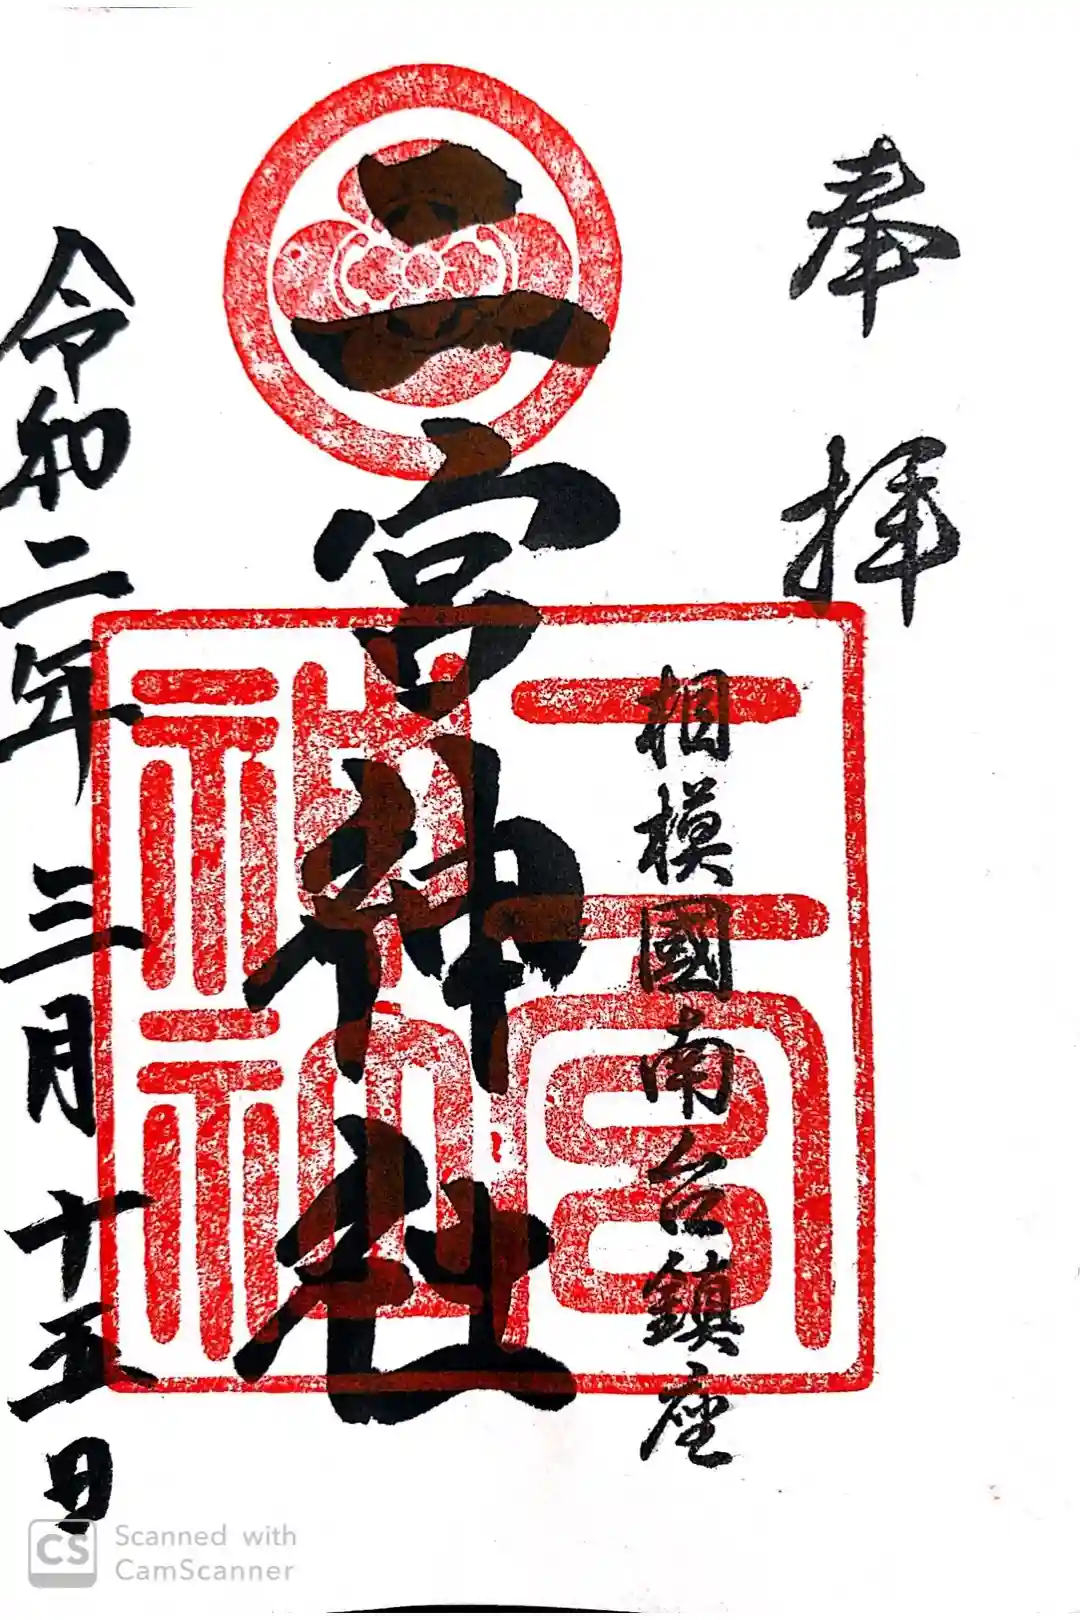 奉拝
相模國南台鎮座
二宮神社
二宮神社
令和二年三月十五日
CS Scanned with
CamScanner